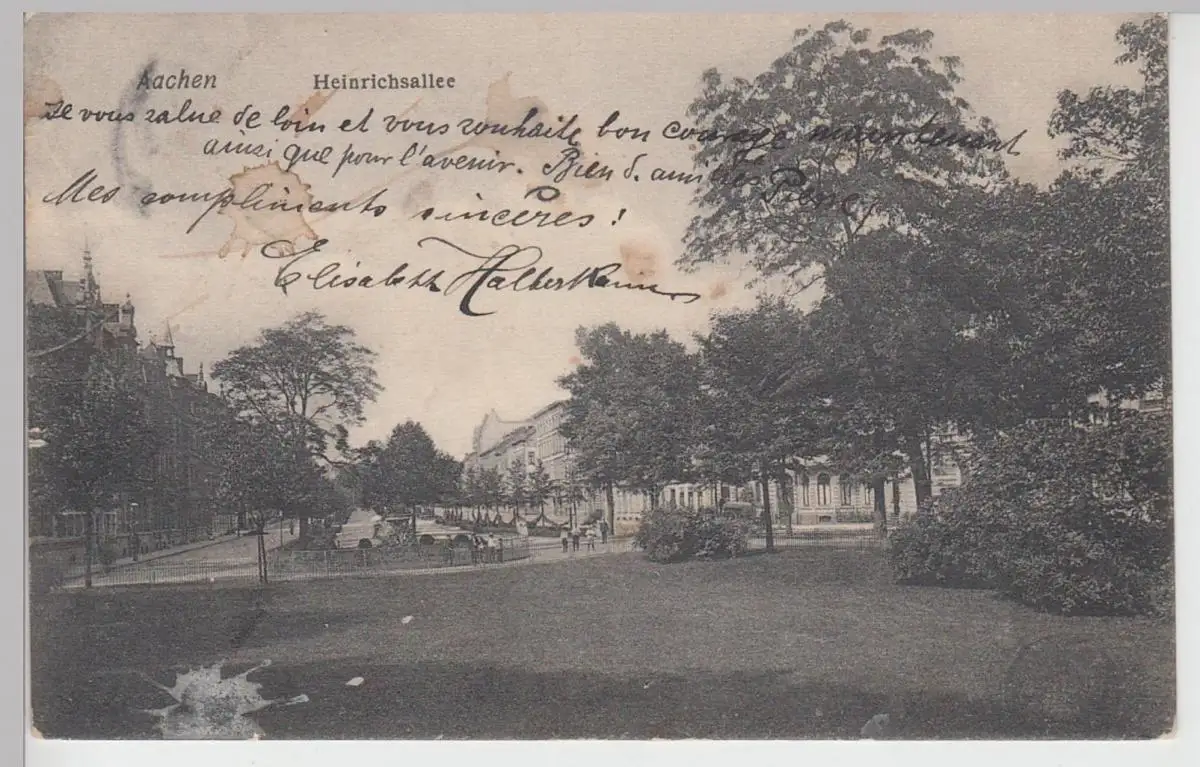 Aachen Heinrichsallee
Je vous salue de loin et vous souhaite bon courage maintenant
ainsi que pour l'avenir. Bien d. amitiés
Mes compliments sincères!
Elisabeth Halberkann